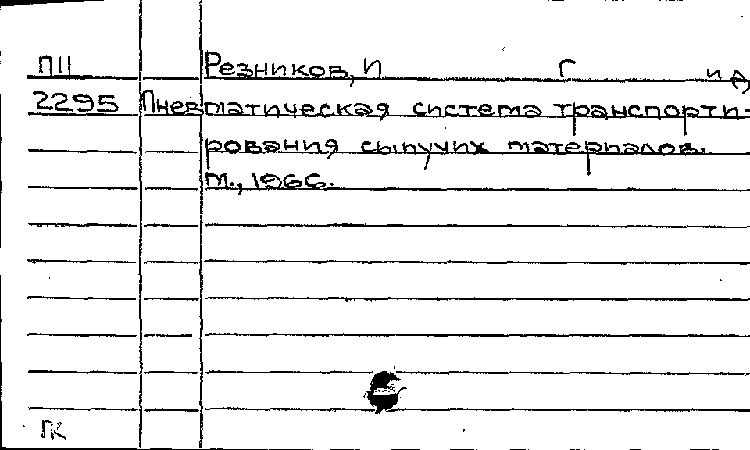 П11 Резников, И Г и д
2295 Пневматическая система транспорти-
рования сыпучих материалов.
М., 1966.
ПК